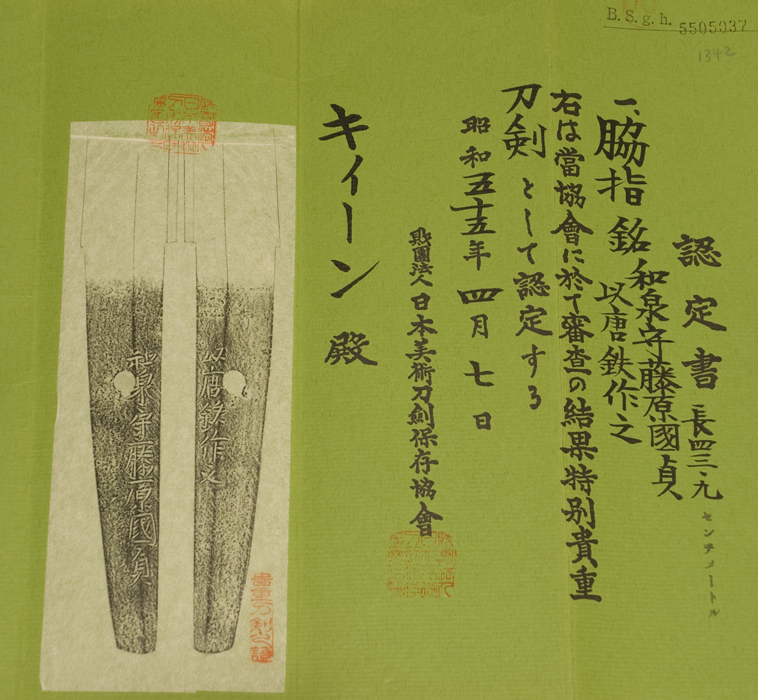 B. S. g. h. 5505037
1342
認定書
一、脇指 銘 和泉守藤原國貞
以唐鉄作之
長四三・九センチメートル
右は當協會に於て審査の結果特別貴重
刀剣として認定する
昭和五十五年四月七日
財團法人日本美術刀劍保存協會
キィーン殿
以唐鉄作之
和泉守藤原國貞